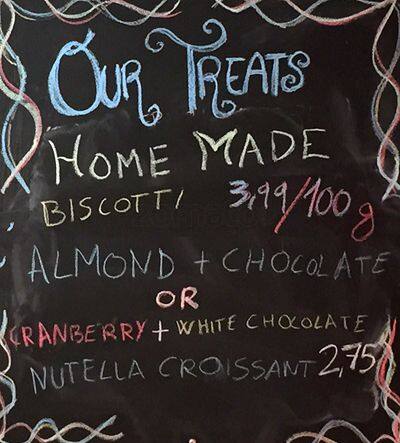 OUR TREATS
HOME MADE
BISCOTTI 3,99/100g
ALMOND + CHOCOLATE
OR
CRANBERRY + WHITE CHOCOLATE
NUTELLA CROISSANT 2,75